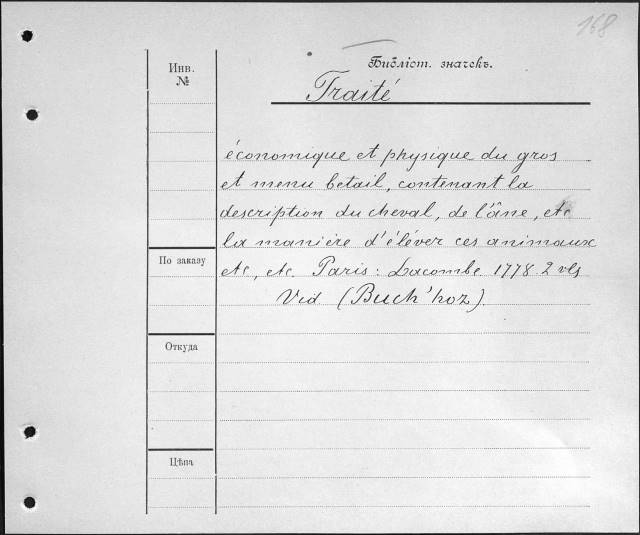 168
Инв. №
Библіот. значекъ.
Traité
économique et physique du gros
et menu betail, contenant la
description du cheval, de l'âne, etc
la manière d'éléver ces animaux
etc., etc. Paris: Lacombe 1778. 2 vls
Vid (Buch'hoz).
По заказу
Откуда
Цѣна